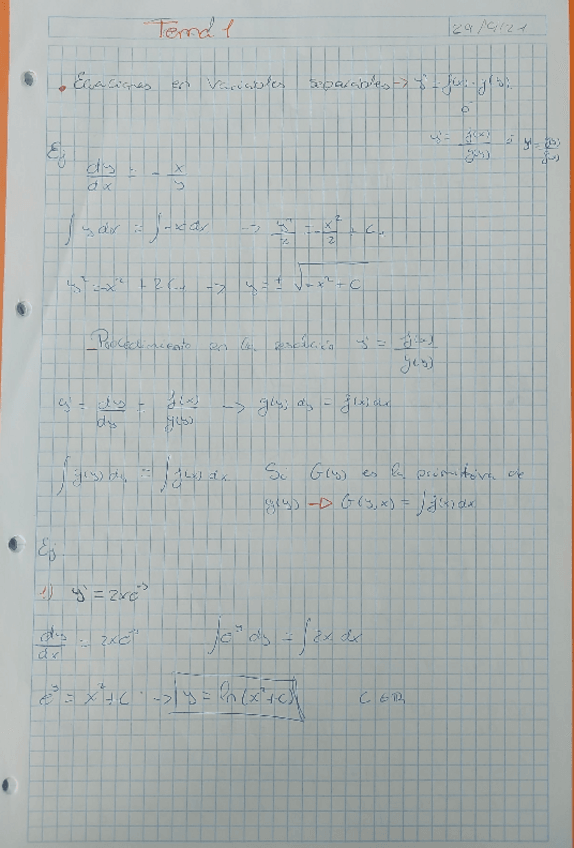 Tema 1
29/9/21
• Ecuaciones en variables separables → y' = f(x) · g(y)
ó
y' = f(x)/g(y) ó y' = g(y)/f(x)
Ej
dy/dx = - x/y
∫ y dx = ∫ -x dx → y²/2 = -x²/2 + C₁
y² = -x² + 2C₁ → y = ± √(-x² + C)
- Procedimiento en la y' = f(x)/g(y)
y' = dy/dy = f(x)/g(y) → g(y) dy = f(x) dx
∫ g(y) dy = ∫ f(x) dx Si G(y) es la primitiva de
g(y) → G(y,x) = ∫ f(x) dx
Ej
1) y' = 2xe⁻ʸ
dy/dx = 2xe⁻ʸ ∫ eʸ dy = ∫ 2x dx
eʸ = x² + C → y = ln(x² + C) C ∈ ℝ